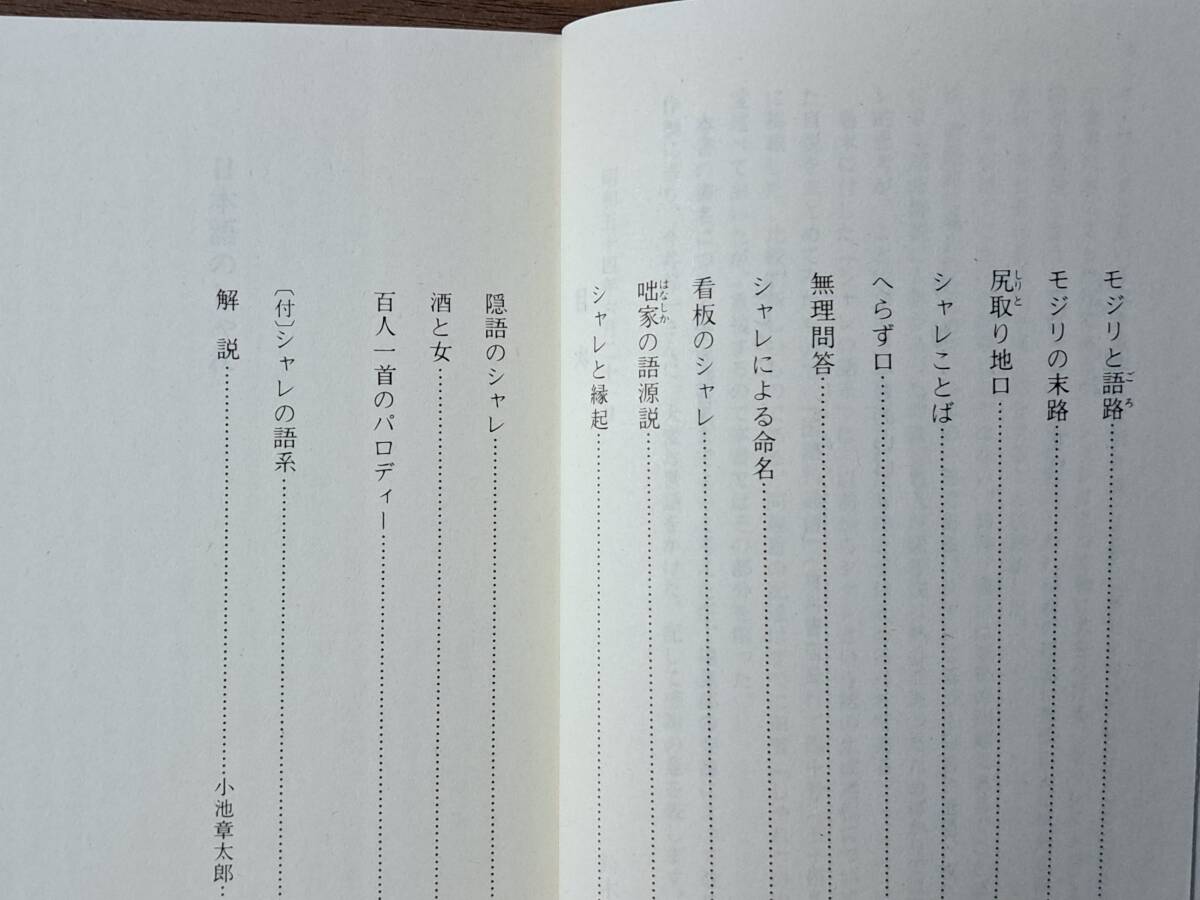 モジリと語路
モジリの末路
尻取り地口
シャレことば
へらず口
無理問答
シャレによる命名
看板のシャレ
咄家の語源説
シャレと縁起
隠語のシャレ
酒と女
百人一首のパロディー
〔付〕シャレの語系
解説 小池章太郎